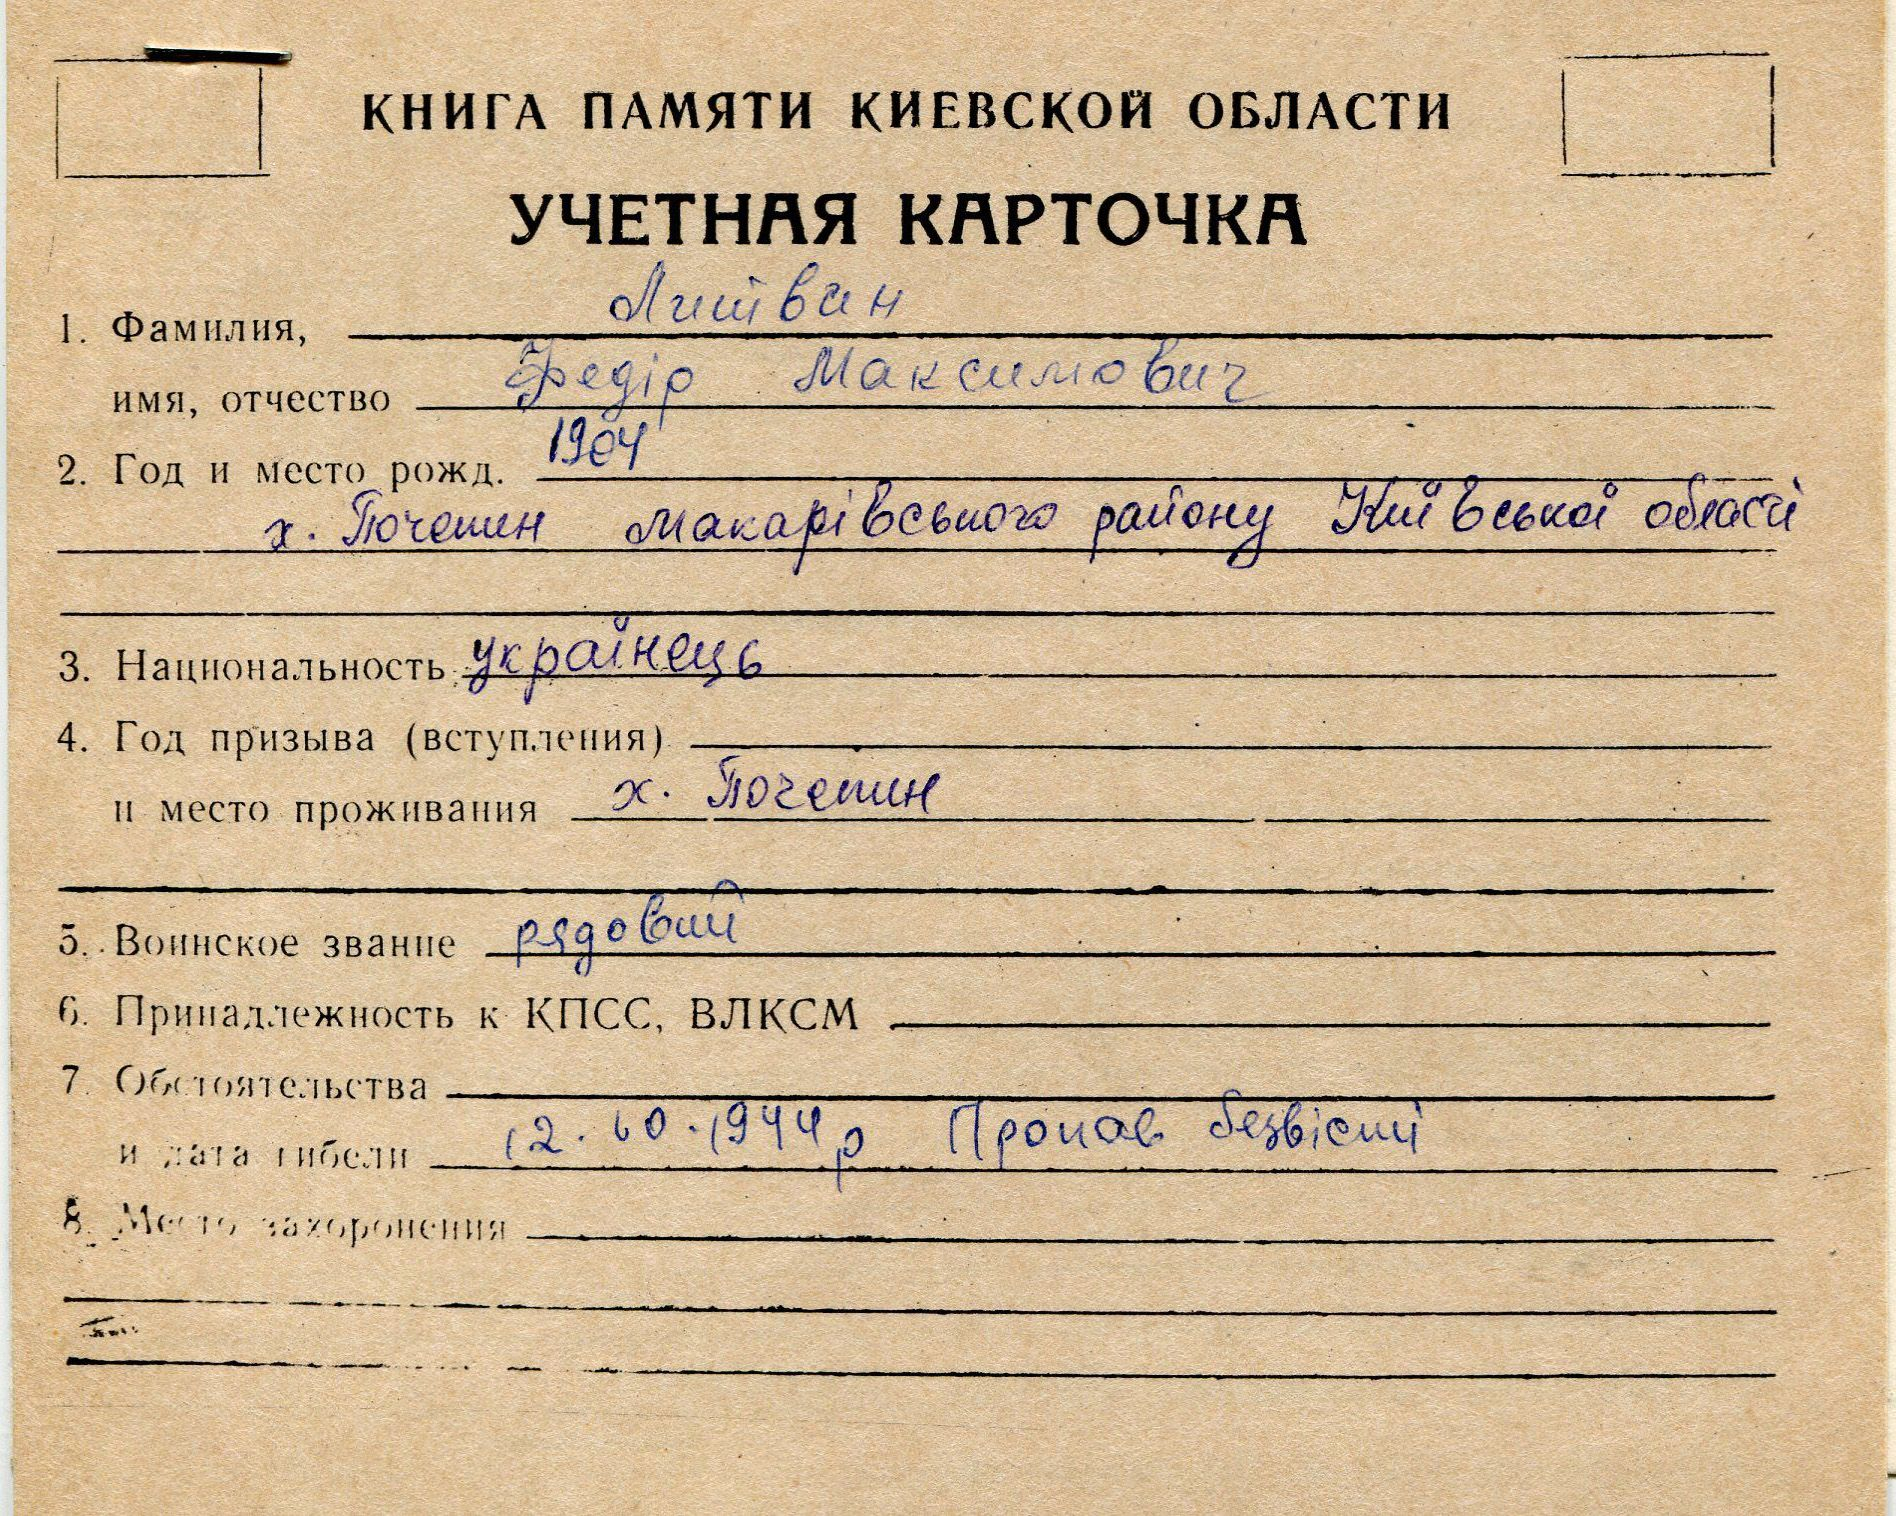 КНИГА ПАМЯТИ КИЕВСКОЙ ОБЛАСТИ
УЧЕТНАЯ КАРТОЧКА
1. Фамилия, Литвин
имя, отчество Федір Максимович
2. Год и место рожд. 1904
х. Почепин Макарівського району Київської області
3. Национальность українець
4. Год призыва (вступления)
и место проживания х. Почепин
5. Воинское звание рядовий
6. Принадлежность к КПСС, ВЛКСМ
7. Обстоятельства
и дата гибели 12.10.1944 р Пропав безвісті
8. Место захоронения